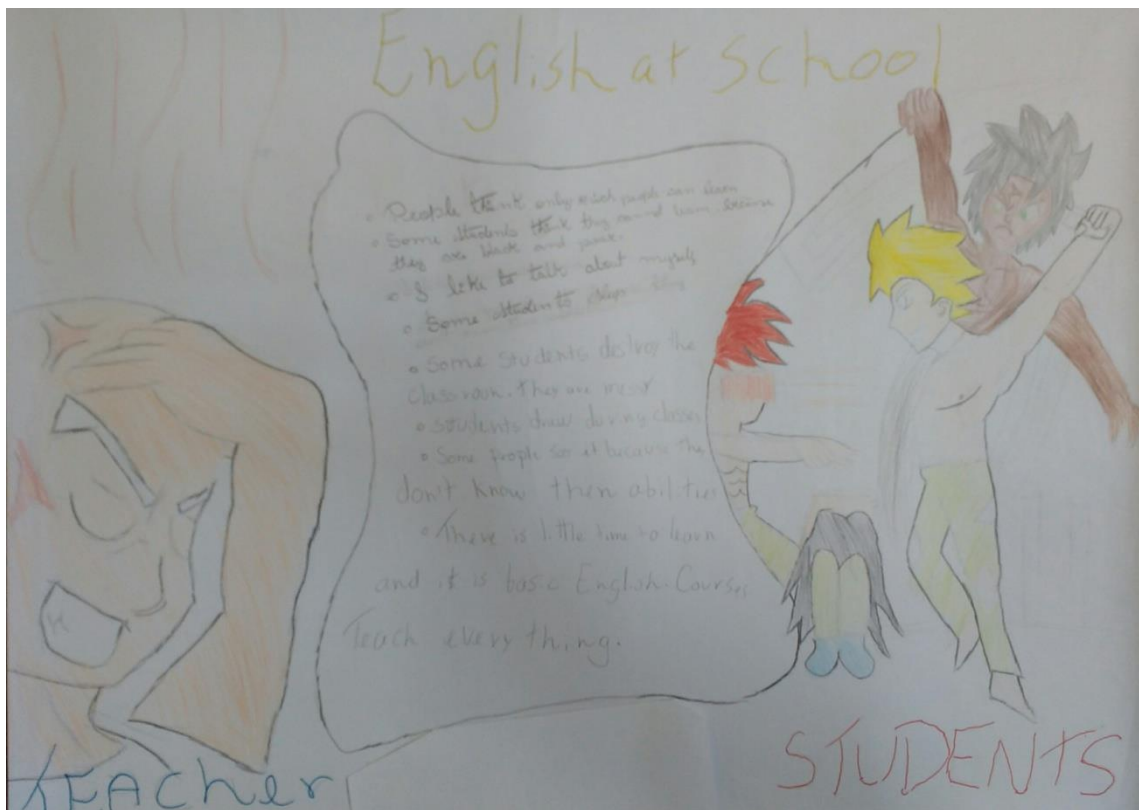 English at school
• People think only rich people can learn
• Some students think they cannot learn because
they are black and poor.
• I like to talk about myself
• Some students
• Some students destroy the
classroom. They are
• Students draw during classes
• Some people say it because they
don't know then abilities
• There is little time to learn
and it is basic English. Courses
Teach every thing.
TEAcher
STUDENTS